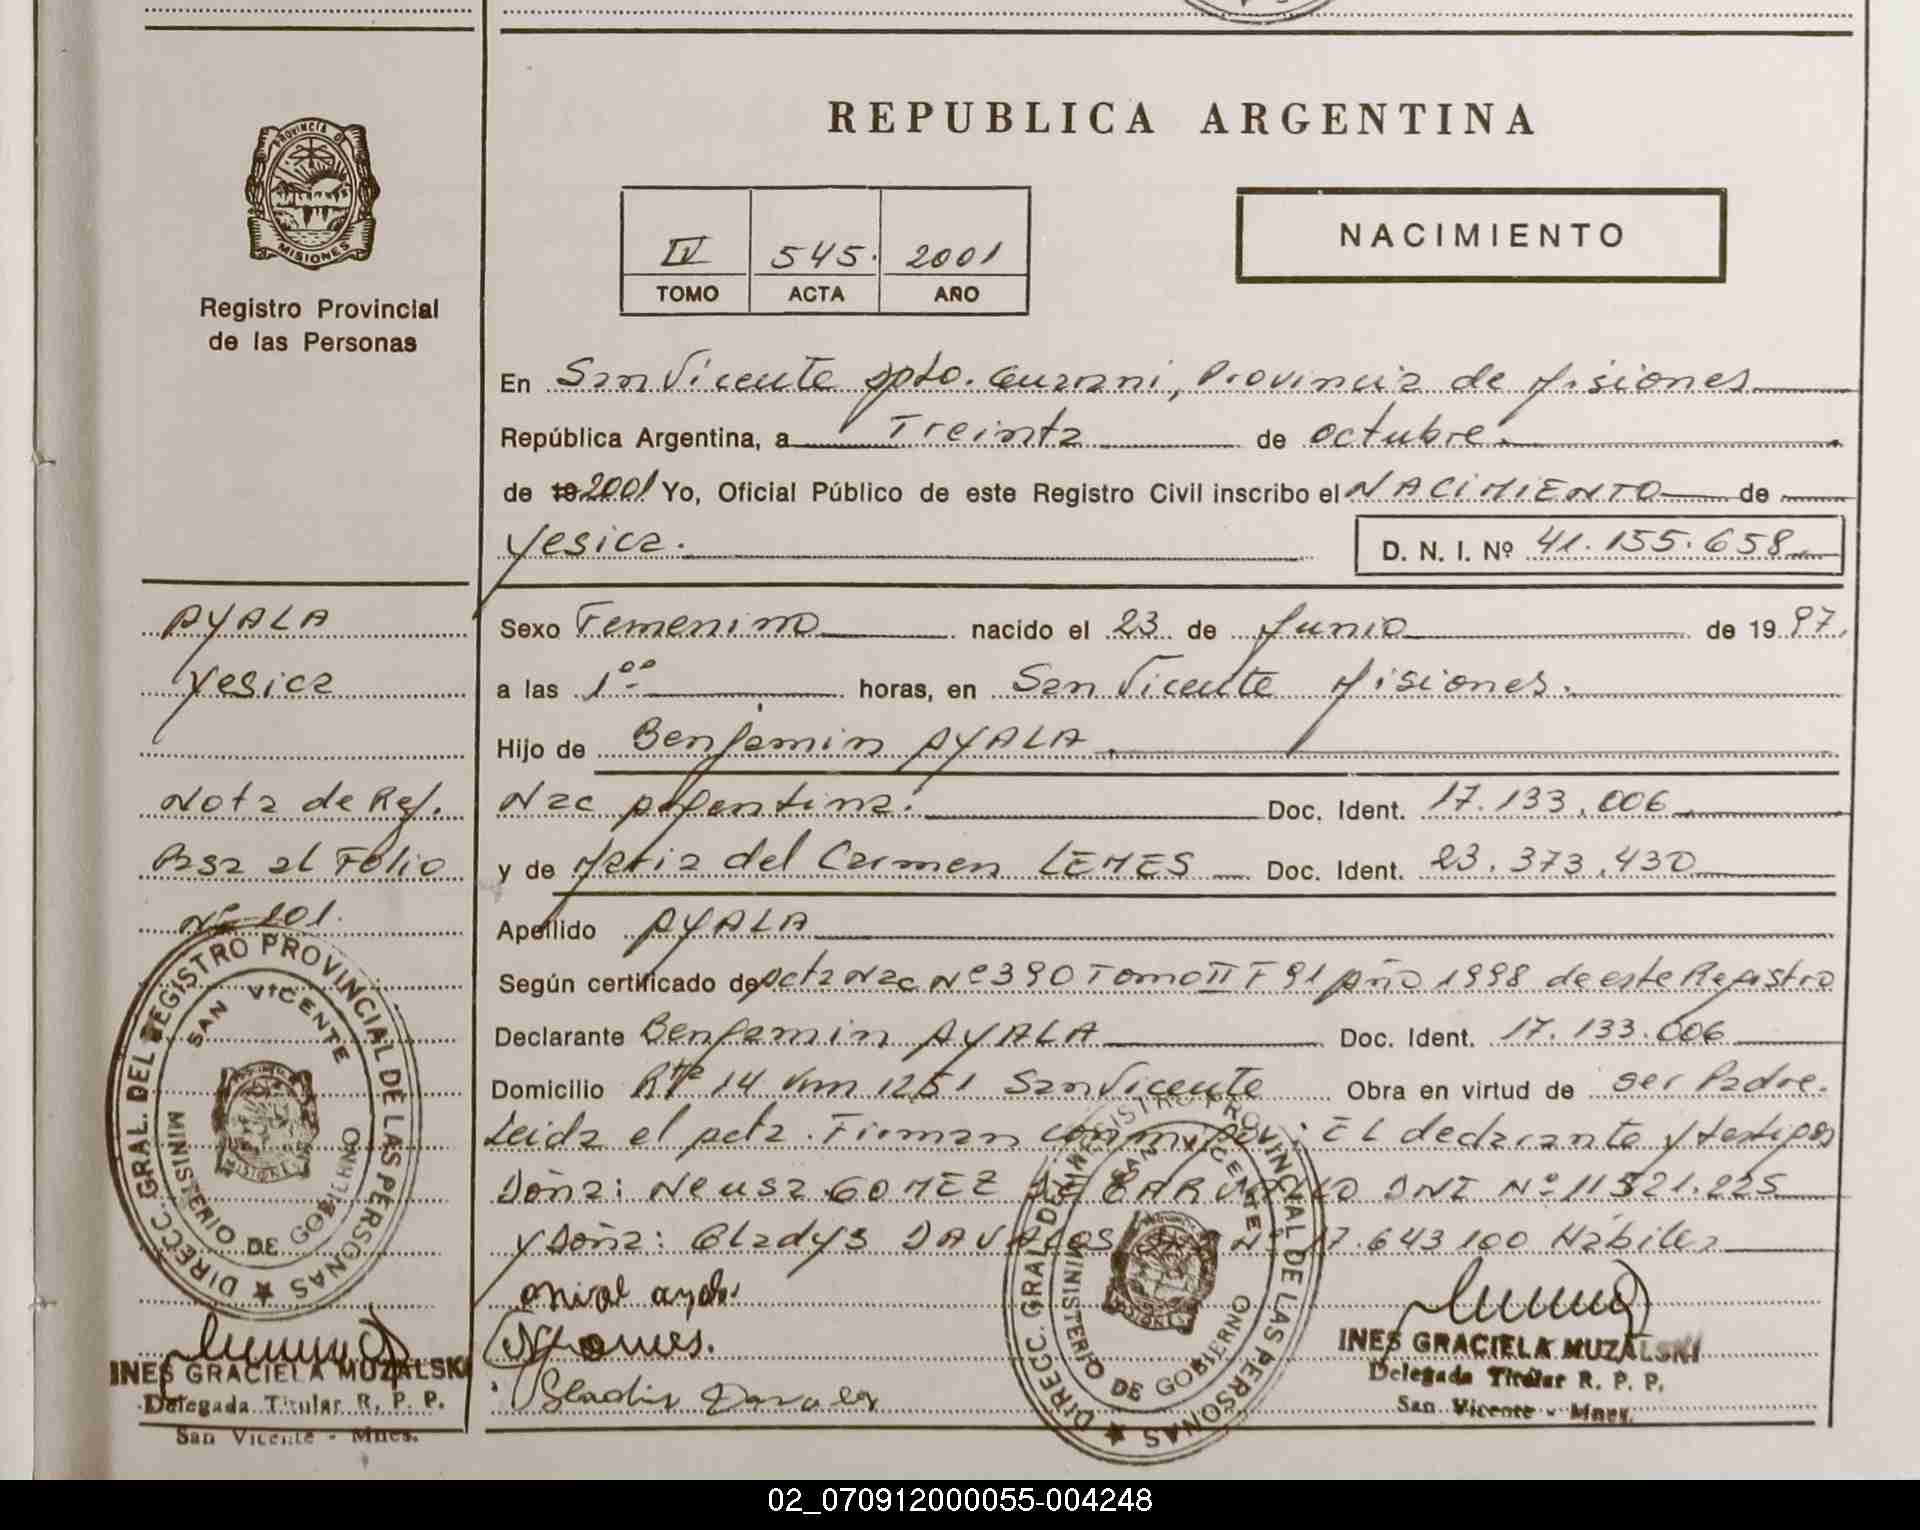 REPUBLICA ARGENTINA
PROVINCIA DE
MISIONES
Registro Provincial
de las Personas
IV 545. 2001
TOMO ACTA AÑO
NACIMIENTO
En San Vicente Dpto. Guarani, Provincia de Misiones
República Argentina, a Treinta de octubre.
de 19 2001 Yo, Oficial Público de este Registro Civil inscribo el NACIMIENTO de
Yesica. D. N. I. Nº 41.155.658
AYALA
Yesica
Nota de Ref.
Pasa al Folio
Nº 101.
Sexo Femenino nacido el 23 de Junio de 1997.
a las 1ºº horas, en San Vicente Misiones.
Hijo de Benjamin AYALA
Nac Argentina. Doc. Ident. 17.133.006
y de Maria del Carmen LEMES Doc. Ident. 23.373.430
Apellido AYALA
Según certificado de Acta Nac Nº 390 Tomo II F 91 Año 1998 de este Registro
Declarante Benjamin AYALA Doc. Ident. 17.133.006
Domicilio Rta 14 Km 1251 San Vicente Obra en virtud de ser Padre.
Leida el Acta. Firman conmigo: EL declarante y testigos
Doña: Neusa GOMEZ DE DNI Nº 11521.225
y Doña: Gladys DAVALOS Nº 17.643.100 Hábiles
DIRECC. GRAL. DEL REGISTRO PROVINCIAL DE LAS PERSONAS
SAN VICENTE
MINISTERIO DE GOBIERNO
MISIONES
INES GRACIELA MUZALSKI
Delegada Titular R. P. P.
San Vicente - Mnes.
DIRECC. GRAL. DEL REGISTRO PROVINCIAL DE LAS PERSONAS
SAN VICENTE
MINISTERIO DE GOBIERNO
INES GRACIELA MUZALSKI
Delegada Titular R. P. P.
San Vicente - Mnes.
02_070912000055-004248